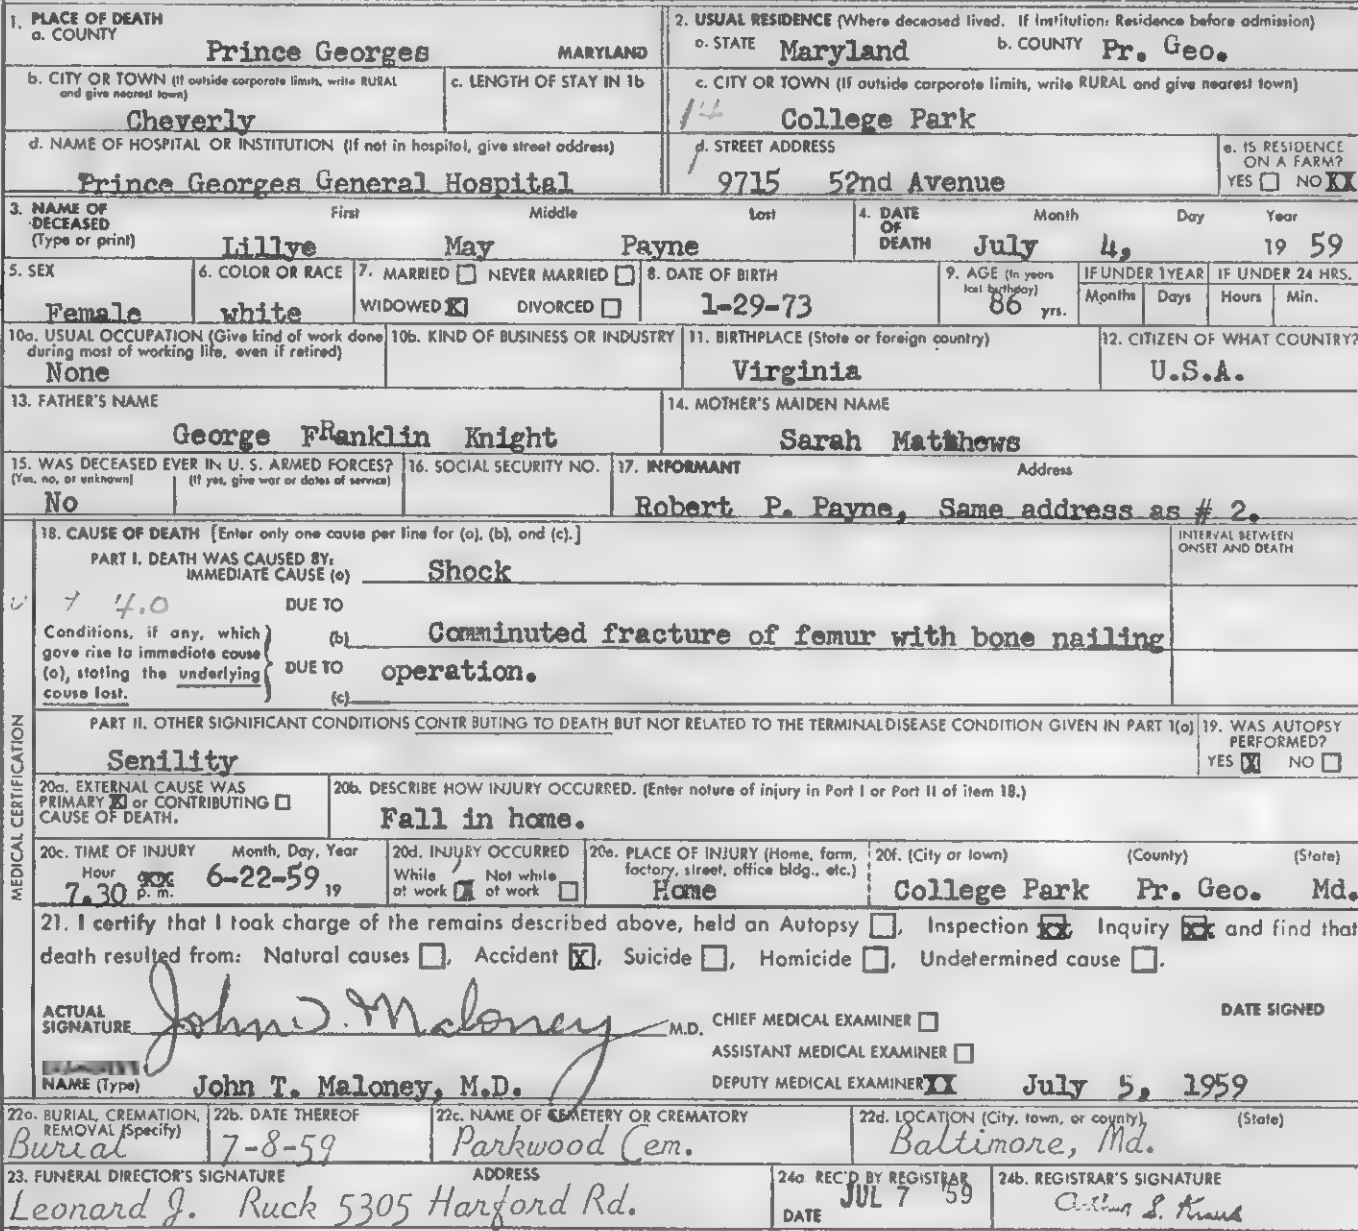 1. PLACE OF DEATH
a. COUNTY
Prince Georges MARYLAND
2. USUAL RESIDENCE (Where deceased lived. If institution: Residence before admission)
a. STATE Maryland b. COUNTY Pr. Geo.
b. CITY OR TOWN (If outside corporate limits, write RURAL and give nearest town)
Cheverly
c. LENGTH OF STAY IN 1b
c. CITY OR TOWN (If outside corporate limits, write RURAL and give nearest town)
14 College Park
d. NAME OF HOSPITAL OR INSTITUTION (If not in hospital, give street address)
Prince Georges General Hospital
d. STREET ADDRESS
9715 52nd Avenue
e. IS RESIDENCE ON A FARM?
YES NO XX
3. NAME OF DECEASED (Type or print)
First Middle Last
Lillye May Payne
4. DATE OF DEATH
Month Day Year
July 4, 19 59
5. SEX
Female
6. COLOR OR RACE
white
7. MARRIED NEVER MARRIED
WIDOWED X DIVORCED
8. DATE OF BIRTH
1-29-73
9. AGE (In years last birthday)
86 yrs.
IF UNDER 1 YEAR
Months Days
IF UNDER 24 HRS.
Hours Min.
10a. USUAL OCCUPATION (Give kind of work done during most of working life, even if retired)
None
10b. KIND OF BUSINESS OR INDUSTRY
11. BIRTHPLACE (State or foreign country)
Virginia
12. CITIZEN OF WHAT COUNTRY?
U.S.A.
13. FATHER'S NAME
George FRanklin Knight
14. MOTHER'S MAIDEN NAME
Sarah Matthews
15. WAS DECEASED EVER IN U. S. ARMED FORCES?
(Yes, no, or unknown) (If yes, give war or dates of service)
No
16. SOCIAL SECURITY NO.
17. INFORMANT Address
Robert P. Payne, Same address as # 2.
MEDICAL CERTIFICATION
18. CAUSE OF DEATH [Enter only one cause per line for (a), (b), and (c).]
INTERVAL BETWEEN ONSET AND DEATH
PART I. DEATH WAS CAUSED BY:
IMMEDIATE CAUSE (a) Shock
DUE TO
Conditions, if any, which gave rise to immediate cause (a), stating the underlying cause last.
(b) Comminuted fracture of femur with bone nailing
DUE TO operation.
(c)
PART II. OTHER SIGNIFICANT CONDITIONS CONTR BUTING TO DEATH BUT NOT RELATED TO THE TERMINAL DISEASE CONDITION GIVEN IN PART I(a)
Senility
19. WAS AUTOPSY PERFORMED?
YES X NO
20a. EXTERNAL CAUSE WAS
PRIMARY X or CONTRIBUTING
CAUSE OF DEATH.
20b. DESCRIBE HOW INJURY OCCURRED. (Enter nature of injury in Part I or Part II of item 18.)
Fall in home.
20c. TIME OF INJURY Month, Day, Year
Hour
7.30 p. m. 6-22-59 19
20d. INJURY OCCURRED
While at work X Not while at work
20e. PLACE OF INJURY (Home, farm, factory, street, office bldg., etc.)
Home
20f. (City or town) (County) (State)
College Park Pr. Geo. Md.
21. I certify that I took charge of the remains described above, held an Autopsy , Inspection XX, Inquiry XX and find that
death resulted from: Natural causes , Accident X, Suicide , Homicide , Undetermined cause .
ACTUAL SIGNATURE John T. Maloney M.D.
CHIEF MEDICAL EXAMINER
DATE SIGNED
ASSISTANT MEDICAL EXAMINER
NAME (Type) John T. Maloney, M.D.
DEPUTY MEDICAL EXAMINER XX July 5, 1959
22a. BURIAL, CREMATION, REMOVAL (Specify)
Burial
22b. DATE THEREOF
7-8-59
22c. NAME OF CEMETERY OR CREMATORY
Parkwood Cem.
22d. LOCATION (City, town, or county) (State)
Baltimore, Md.
23. FUNERAL DIRECTOR'S SIGNATURE ADDRESS
Leonard J. Ruck 5305 Harford Rd.
24a. REC'D BY REGISTRAR
DATE JUL 7 '59
24b. REGISTRAR'S SIGNATURE
Arthur S. Kraus